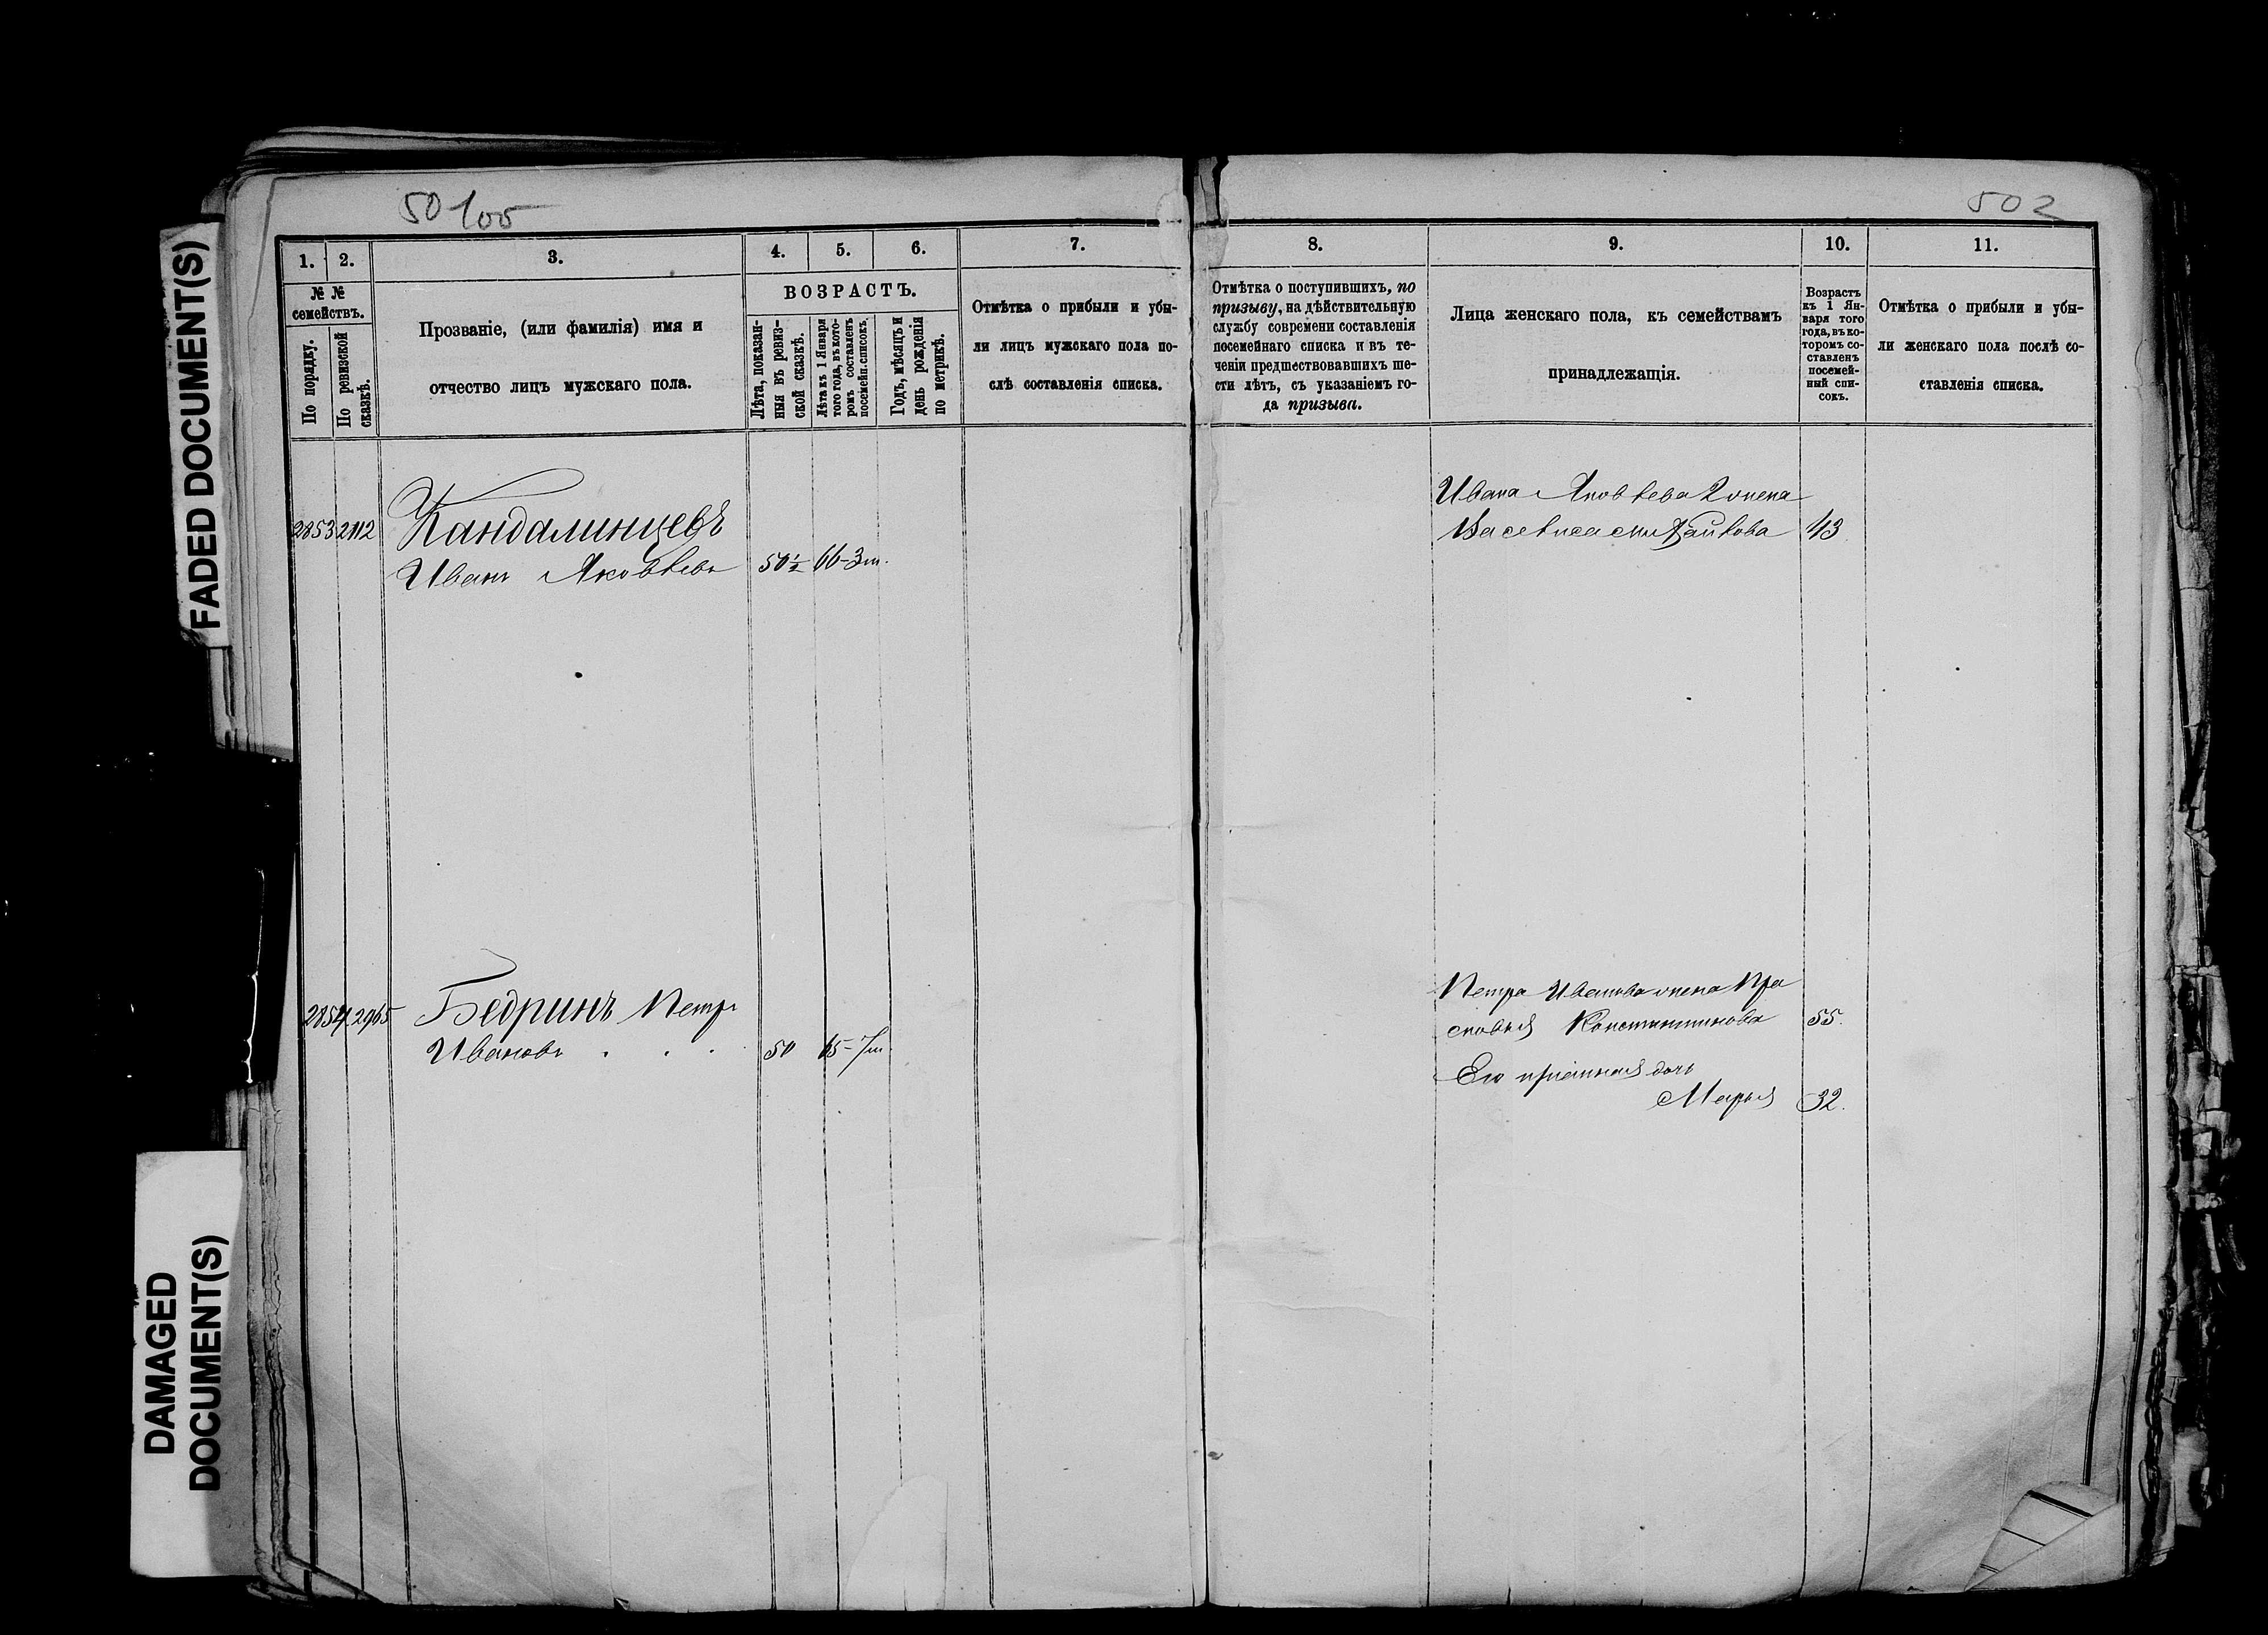 FADED DOCUMENT(S)
DAMAGED
DOCUMENT(S)
502
1.
2.
3.
4.
5.
6.
7.
№ №
семействъ.
По порядку.
По ревизской
сказкѣ.
Прозваніе, (или фамилія) имя и
отчество лицъ мужскаго пола.
ВОЗРАСТЪ.
Лѣта, показан-
ныя въ ревиз-
ской сказкѣ.
Лѣта къ 1 Января
того года, въ кото-
ромъ составленъ
посемейн. списокъ.
Годъ, мѣсяцъ и
день рожденія
по метрикѣ.
Отмѣтка о прибыли и убы-
ли лицъ мужскаго пола по-
слѣ составленія списка.
8.
9.
10.
11.
Отмѣтка о поступившихъ, по
призыву, на дѣйствительную
службу современи составленія
посемейнаго списка и въ те-
ченіи предшествовавшихъ ше-
сти лѣтъ, съ указаніемъ го-
да призыва.
Лица женскаго пола, къ семействамъ
принадлежащія.
Возрастъ
къ 1 Ян-
варя того
года, въ ко-
торомъ со-
ставленъ
посемей-
ный спи-
сокъ.
Отмѣтка о прибыли и убы-
ли женскаго пола послѣ со-
ставленія списка.
2853 2112 Кандалинцевъ
Иванъ Яковлевъ 50½ 66-3м.
Ивана Яковлева 2 жена
Васелиса Михайлова 43
2854 2965 Бедринъ Петръ
Ивановъ . . . 50 65-7м.
Петра Иванова жена Пра
сковья Константинова 55.
Его пріемная дочь
Марья 32.